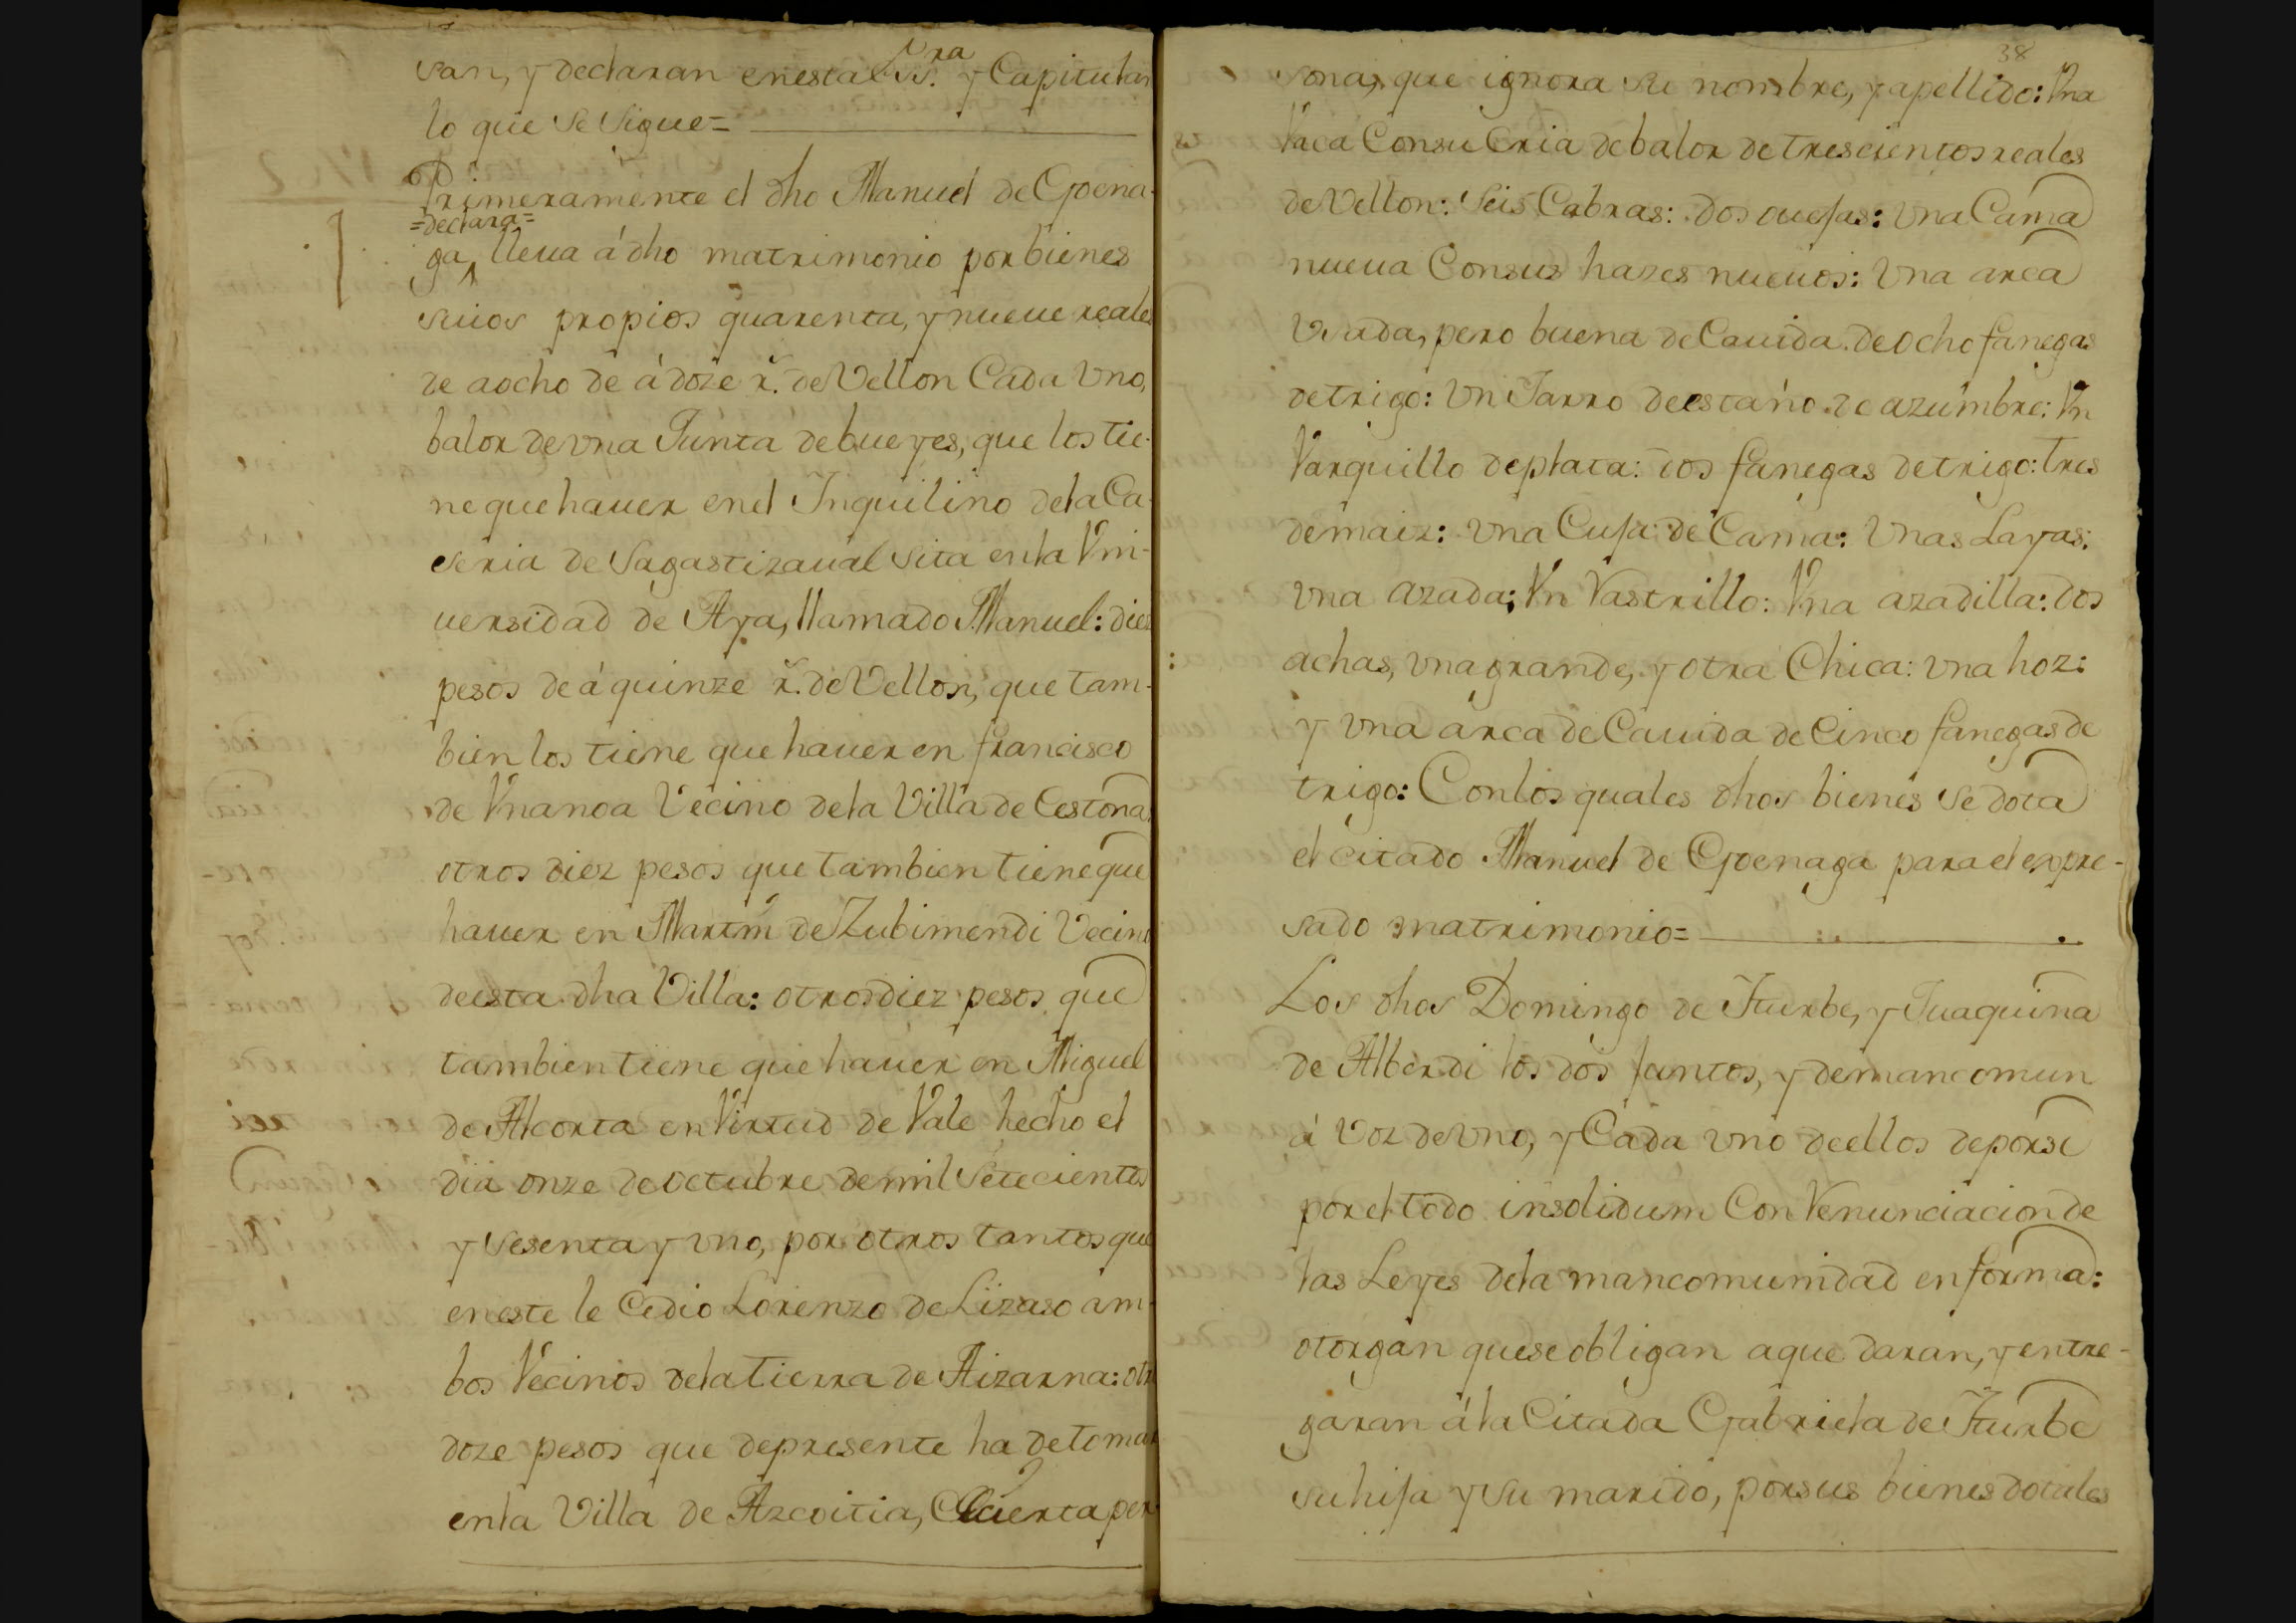 san, y declaran en esta ss.ra y Capitulan
lo que se sigue=
Primeramente el dho Manuel de Goena-
=declara=
ga, lleua á dho matrimonio por bienes
suios propios quarenta, y nueue reales
de a ocho de á doze r.s de Vellon Cada Uno,
balor de vna Junta de bueyes, que los tie-
ne que hauer en el Inquilino de la Ca-
seria de Sagastizaual sita en la Vni-
uersidad de Aya, llamado Manuel: diez
pesos de á quinze r.s de Vellon, que tam-
bien los tiene que hauer en francisco
de Vnanoa Vecino de la Villa de Cestona
otros diez pesos que tambien tiene que
hauer en Martin de Zubimendi Vecino
de esta dha Villa: otros diez pesos que
tambien tiene que hauer en Miguel
de Alcorta en Virtud de Vale hecho el
dia onze de octubre de mil Setecientos
y Sesenta y vno, por otros tantos que
en este le Cedio Lorenzo de Lizaso am-
bos Vecinos de la tierra de Aizarna: otros
doze pesos que de presente ha de tomar
en la Villa de Azcoitia, Cierta per-
38
sona, que ignora su nombre, y apellido: Vna
Vaca Con su Cria de balor de trescientos reales
de Vellon: Seis Cabras: dos ouejas: Vna Cama
nueua Con sus hazes nueuos: Vna arca
Vsada, pero buena de Cauida de ocho fanegas
de trigo: Vn Jarro de estaño de azumbre: Vn
Varquillo de plata: dos fanegas de trigo: tres
de maiz: Vna Cuja de Cama: Vnas Layas:
Vna azada: Vn Rastrillo: Vna azadilla: dos
achas, Vna grande, y otra Chica: Vna hoz:
y Vna arca de Cauida de Cinco fanegas de
trigo: Con los quales dhos bienes se dota
el citado Manuel de Goenaga para el expre-
sado matrimonio=
Los dhos Domingo de Iturbe, y Juaquina
de Alberdi los dos juntos, y de mancomun
á Voz de Vno, y Cada vno de ellos de por si
por el todo insolidum Con Renunciacion de
las Leyes de la mancomunidad en forma:
otorgan que se obligan a que daran, y entre-
garan á la Citada Gabriela de Iturbe
su hija y su marido, por sus bienes dotales